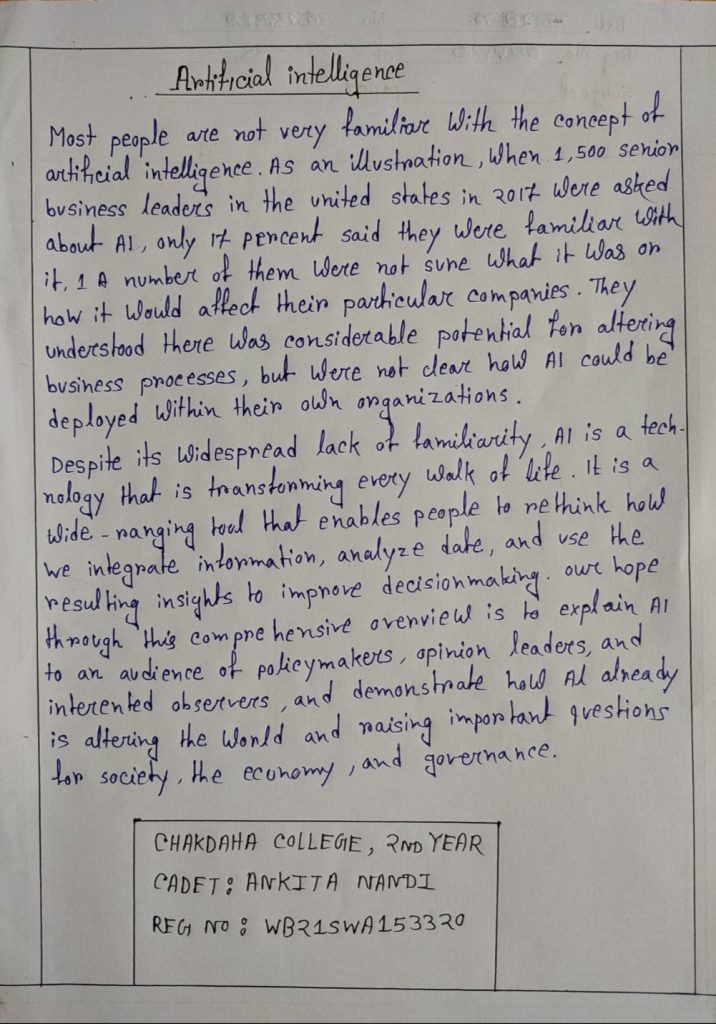 Artificial intelligence
Most people are not very familiar with the concept of
artificial intelligence. As an illustration, when 1,500 senior
business leaders in the united states in 2017 were asked
about AI, only 17 percent said they were familiar with
it, 1 A number of them were not sure what it was or
how it would affect their particular companies. They
understood there was considerable potential for altering
business processes, but were not clear how AI could be
deployed within their own organizations.
Despite its widespread lack of familiarity, AI is a tech-
nology that is transforming every walk of life. It is a
wide-ranging tool that enables people to rethink how
we integrate information, analyze date, and use the
resulting insights to improve decisionmaking. our hope
through this comprehensive overview is to explain AI
to an audience of policymakers, opinion leaders, and
interented observers, and demonstrate how AI already
is altering the world and raising important questions
for society, the economy, and governance.
CHAKDAHA COLLEGE, 2ND YEAR
CADET: ANKITA NANDI
REG NO: WB21SWA153320